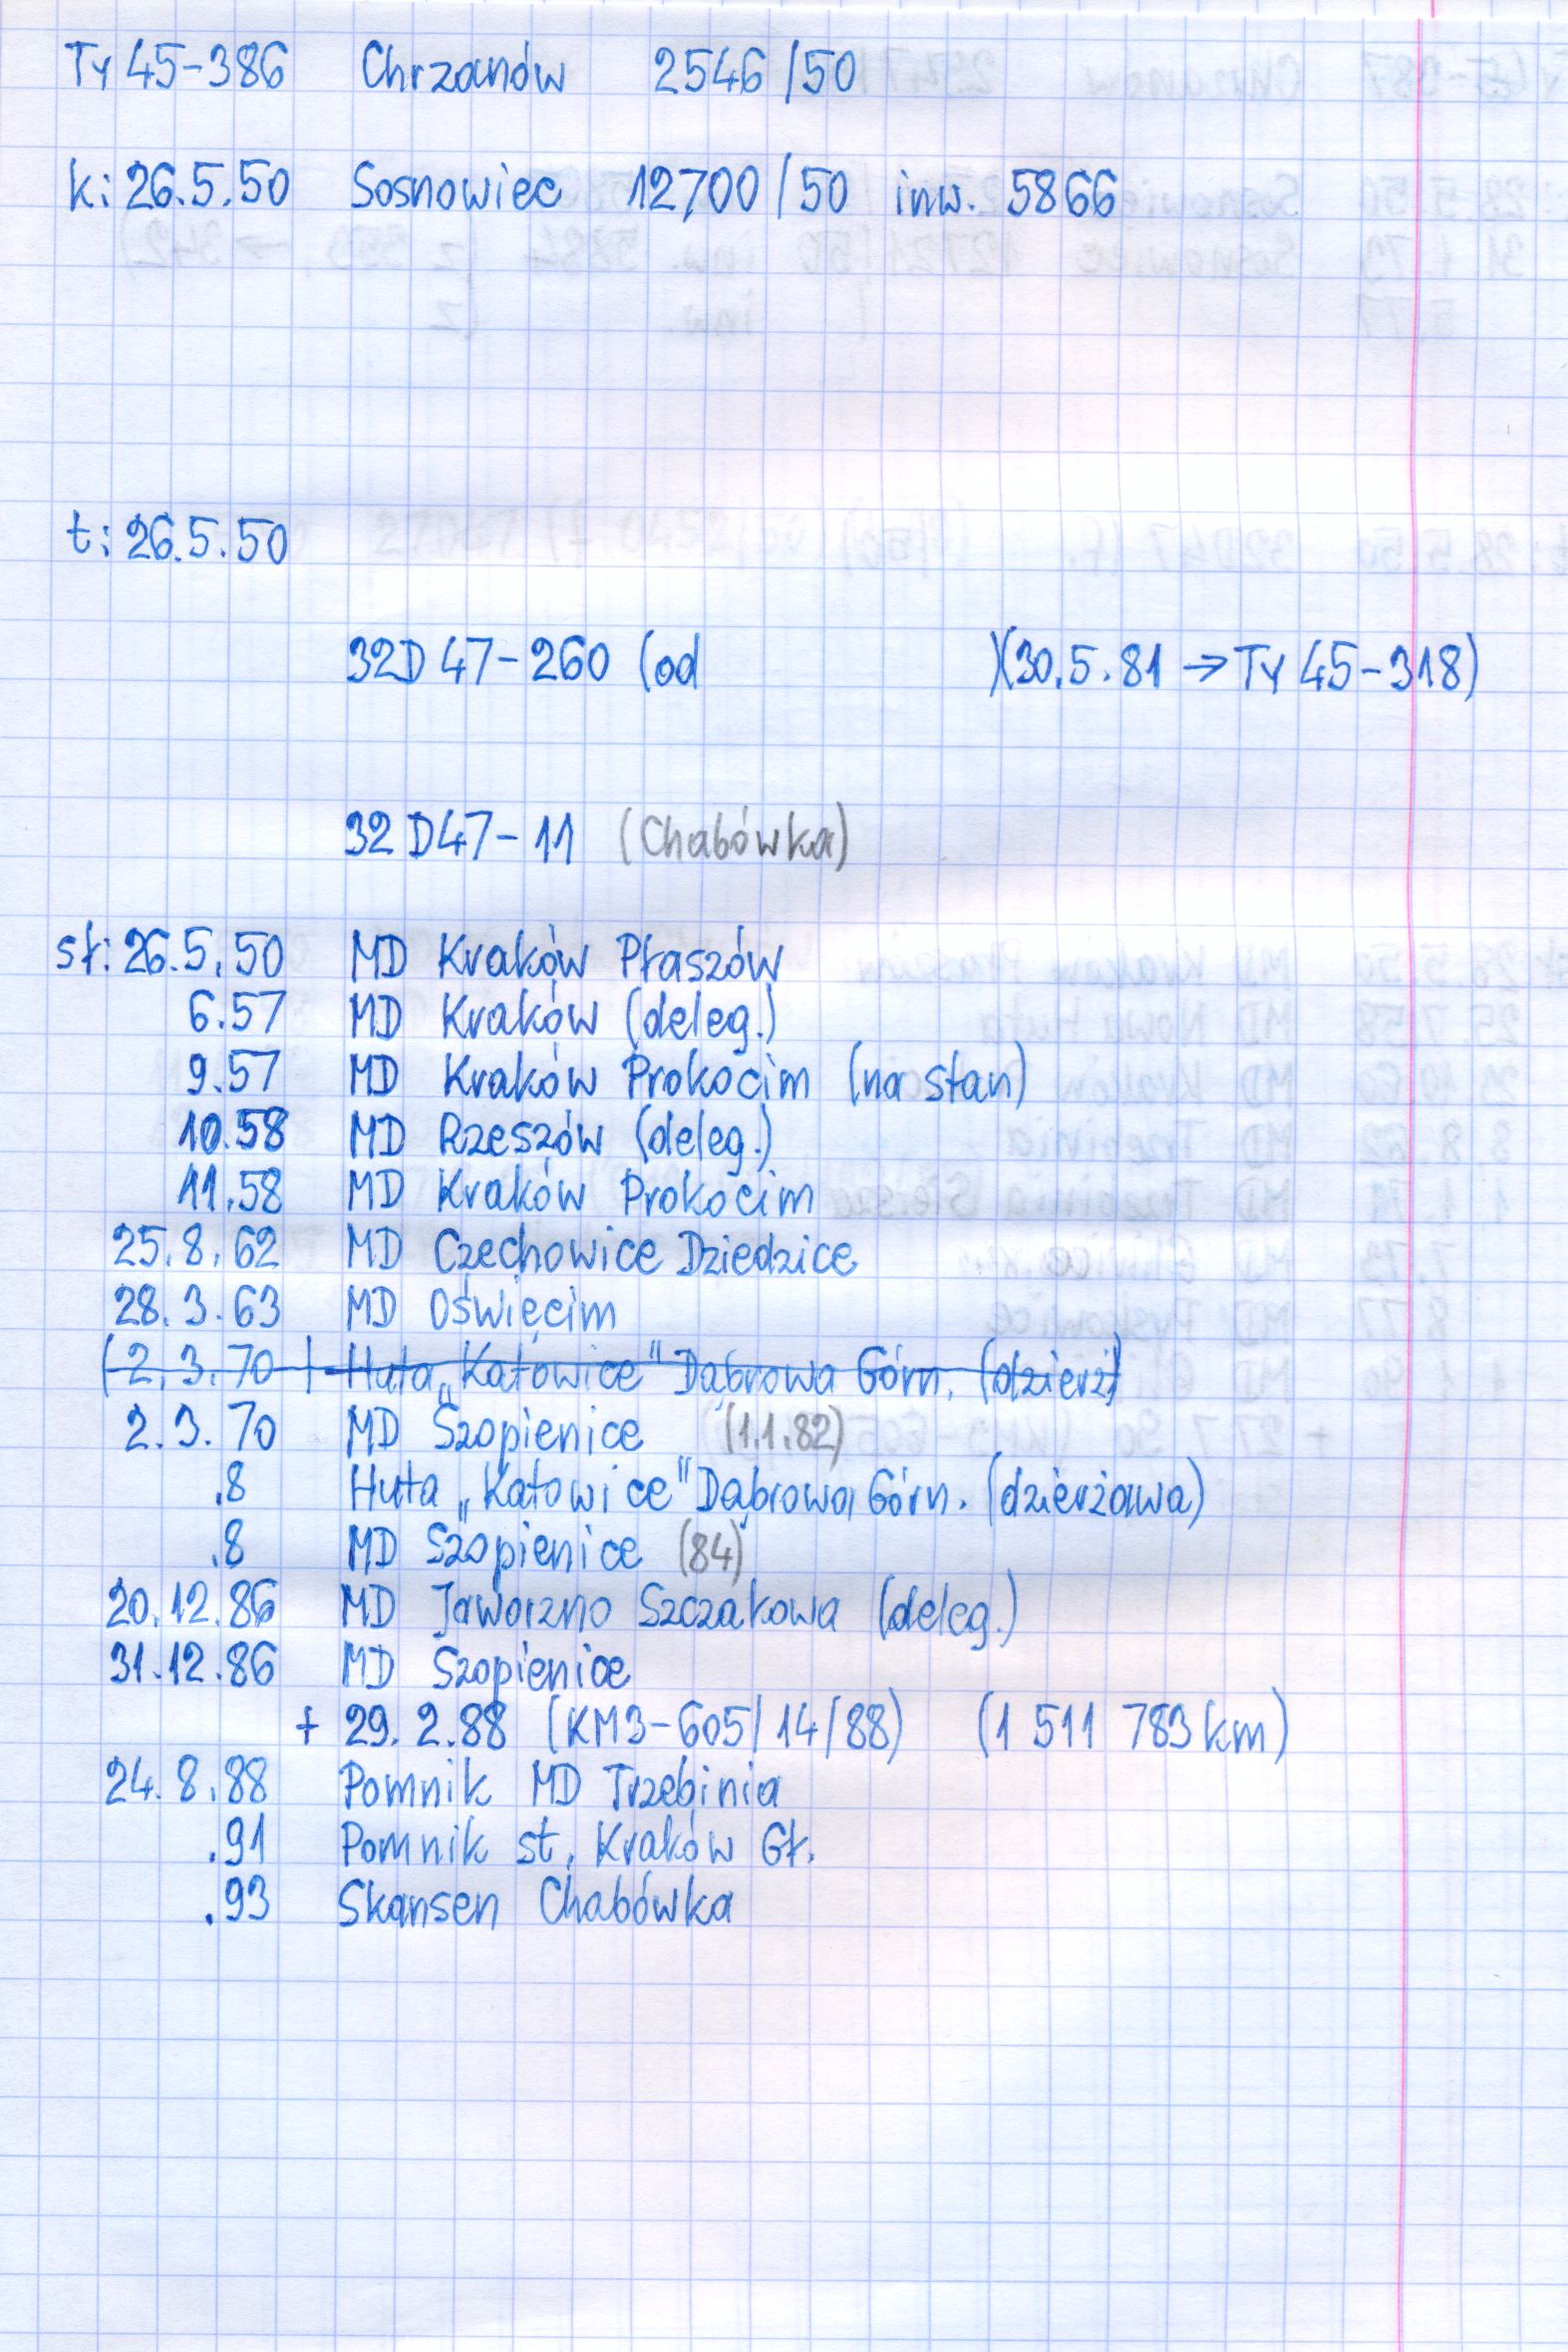 Ty 45-386 Chrzanów 2546/50
k: 26.5.50 Sosnowiec 12700/50 inw. 5866
t: 26.5.50
32D47-260 (od )(30.5.81 → Ty 45-318)
32D47-11 (Chabówka)
st: 26.5.50 MD Kraków Płaszów
6.57 MD Kraków (deleg.)
9.57 MD Kraków Prokocim (na stan)
10.58 MD Rzeszów (deleg.)
11.58 MD Kraków Prokocim
25.8.62 MD Czechowice Dziedzice
28.3.63 MD Oświęcim
(2.3.70) Huta „Katowice" Dąbrowa Górn. (dzierż)
2.3.70 MD Szopienice (1.1.82)
.8 Huta „Katowice" Dąbrowa Górn. (dzierżawa)
.8 MD Szopienice (84)
20.12.86 MD Jaworzno Szczakowa (deleg.)
31.12.86 MD Szopienice
+ 29.2.88 (KM3-605/14/88) (1 511 783 km)
24.8.88 Pomnik MD Trzebinia
.91 Pomnik st. Kraków Gł.
.93 Skansen Chabówka